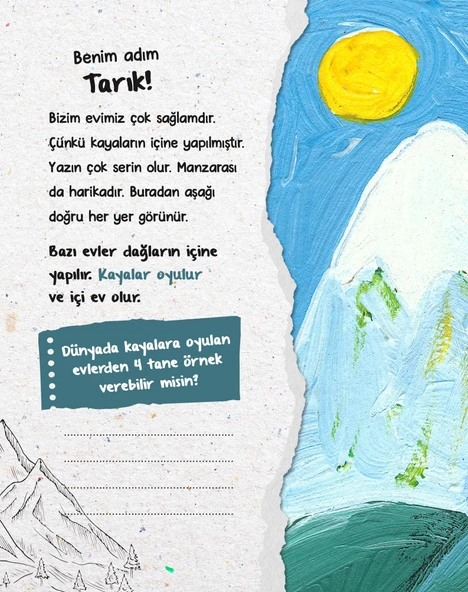 Benim adım
Tarık!
Bizim evimiz çok sağlamdır.
Çünkü kayaların içine yapılmıştır.
Yazın çok serin olur. Manzarası
da harikadır. Buradan aşağı
doğru her yer görünür.
Bazı evler dağların içine
yapılır. Kayalar oyulur
ve içi ev olur.
Dünyada kayalara oyulan
evlerden 4 tane örnek
verebilir misin?